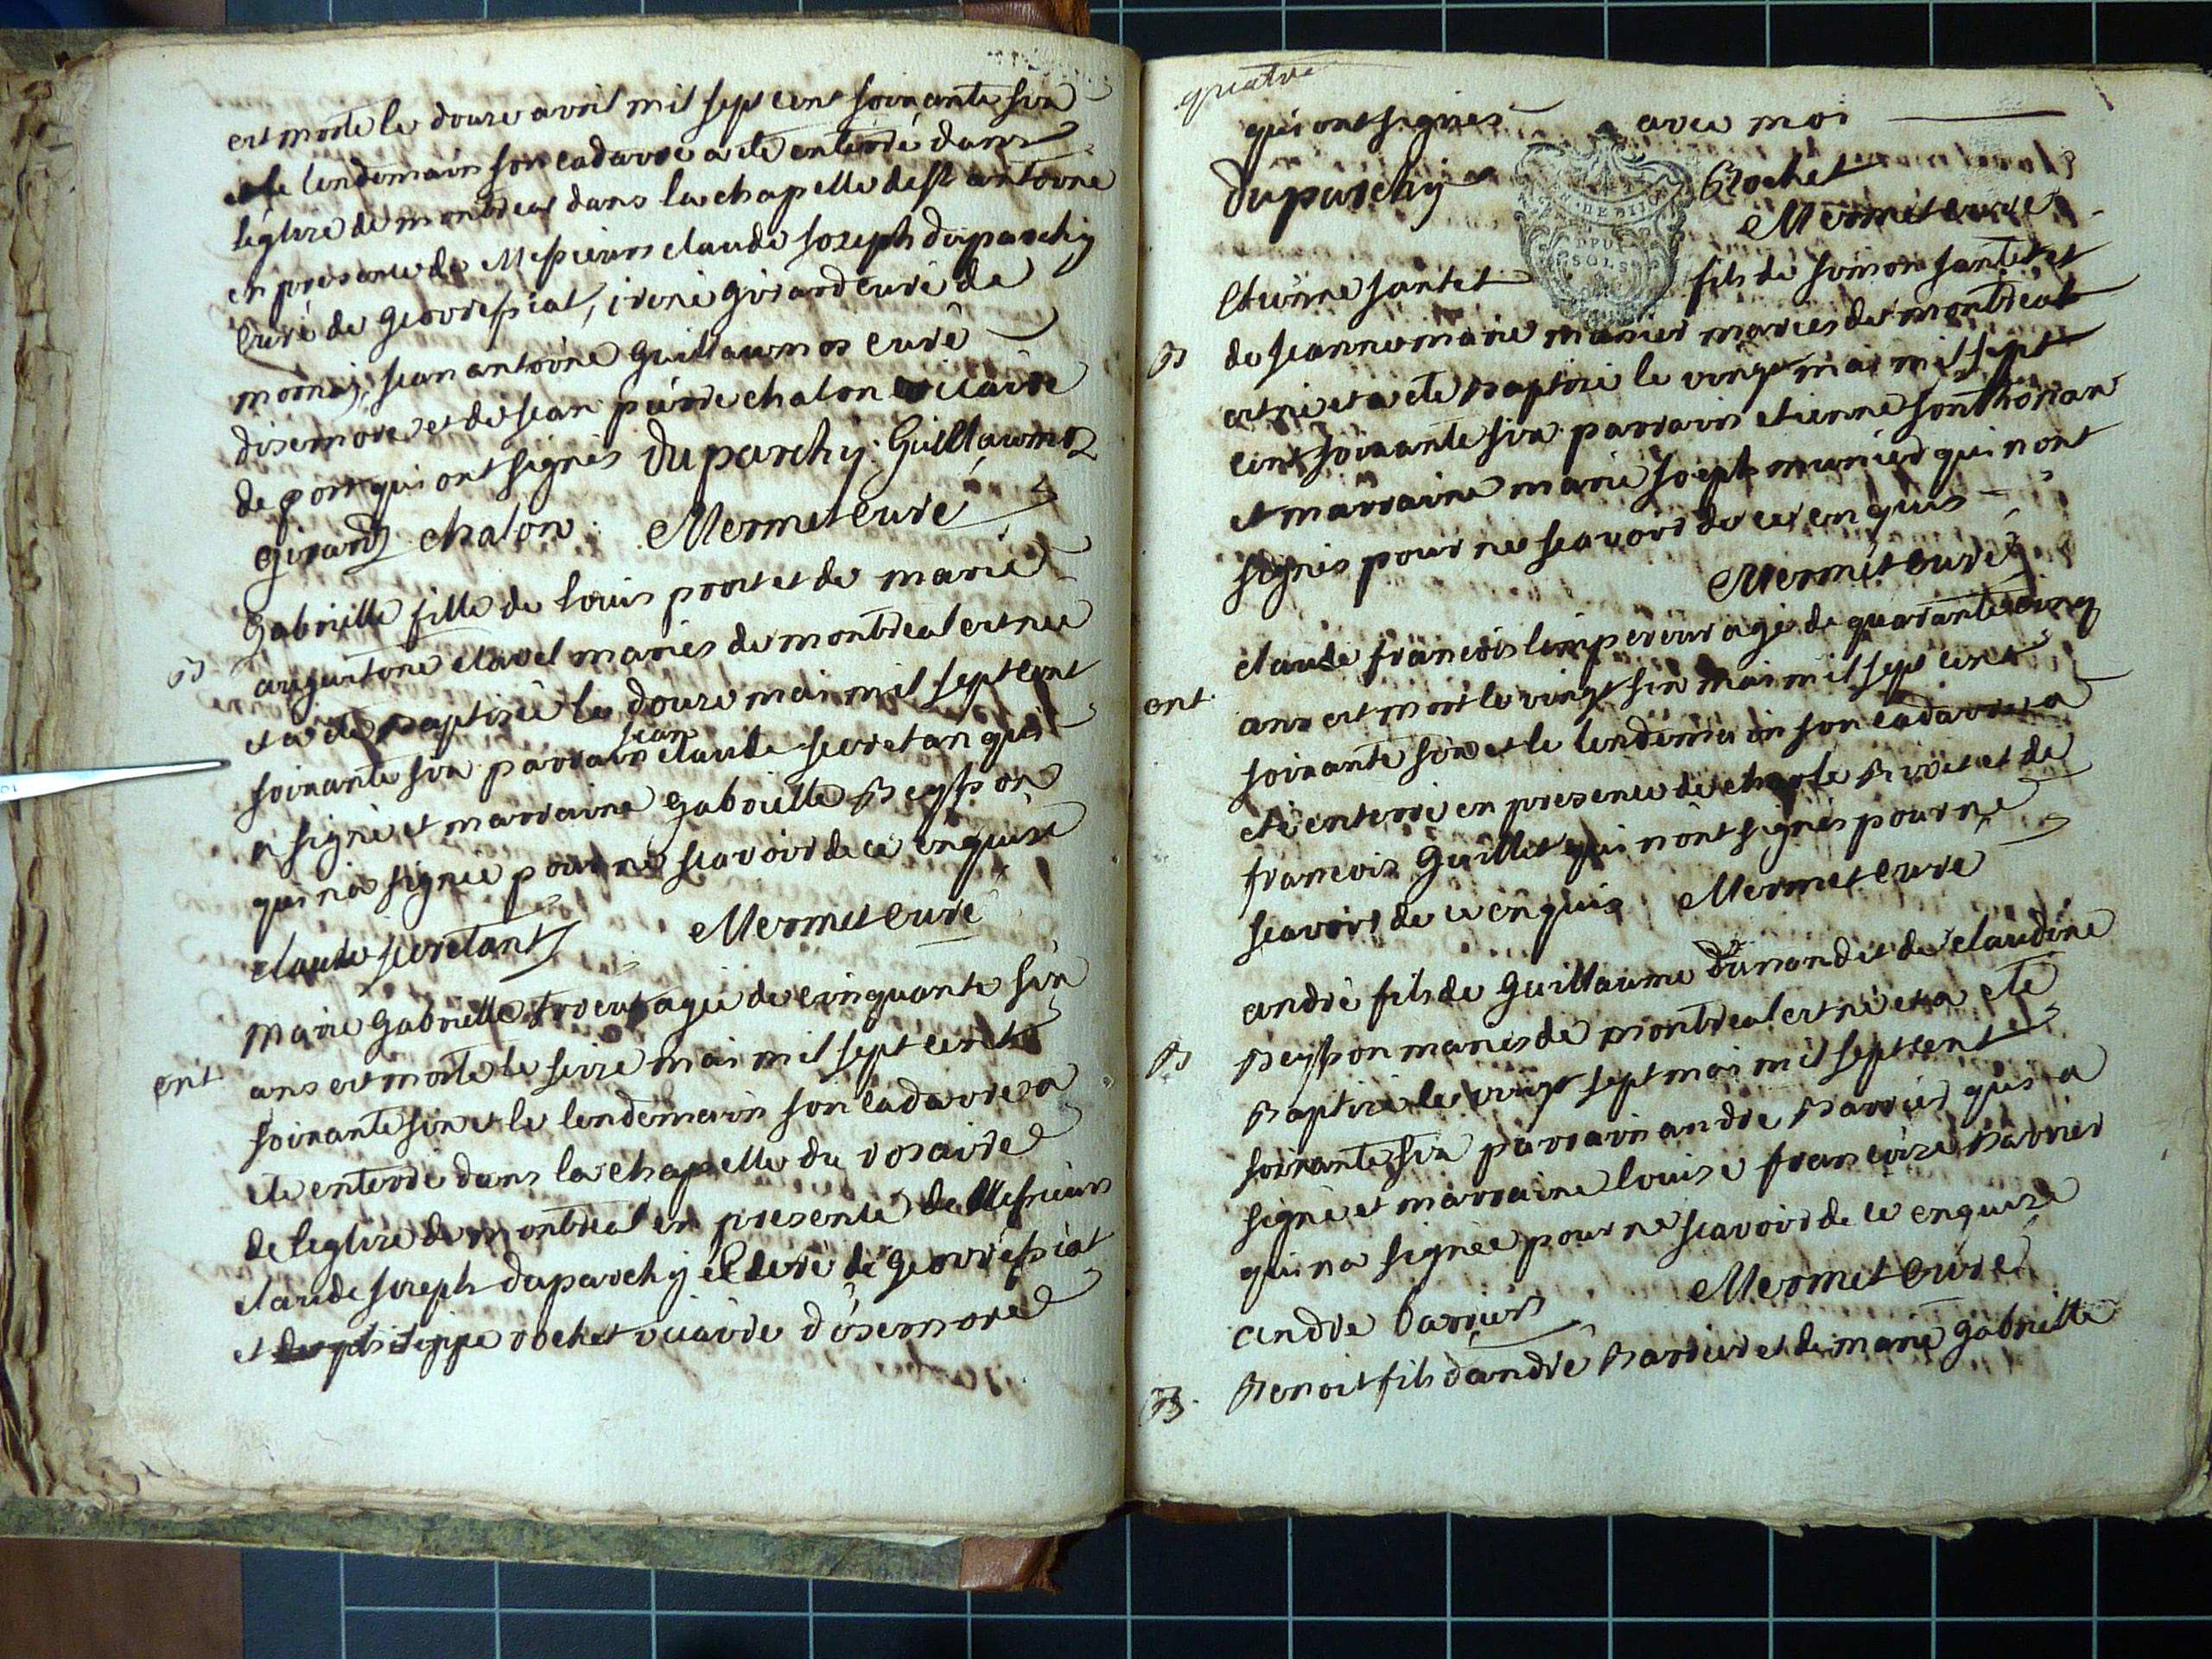 est morte le douze avril mil sept cent soixante six
et le lendemain son cadavre a ete enterré dans
l'églize de montreal dans la chapelle de st antoine
en presence de Messieurs claude joseph duparchy
curé de geovressiat, irené girard curé de
mornaj, jean antoine guillaumos curé
disernore et de jean pierre chalon vicaire
de port qui ont signés duparchy Guillaumos
girard chalon Mermet curé
gabrielle fille de louis prost et de marie
clavel mariés de montreal est née
B
et a ete Baptisée le douze mai mil sept cent
jean
soixante six parrain claude secretan qui
a signé et marraine gabrielle Beysson
qui na signée pour ne scavoir de ce enquise
claude secretant Mermet curé
marie gabrielle agée de cinquante six
ent
ans est morte le seize mai mil sept cent
soixante six et le lendemain son cadavre a
ete enterré dans la chapelle du rosaire
de leglize de montreal en presence de Messieurs
claude joseph duparchy curé de geovressiat
et philippe rochet vicaire disernore
quatre
qui ont signés avec moi
duparchy Rochet
Mermet curé
DPU
SOLS
Etienne santet fils de simon santet et
B
de jeanne marie munier mariés de montreal
est né et a ete Baptisé le vingt mai mil sept
cent soixante six parrain etienne sonthonax
et marraine marie joseph munier qui n'ont
signés pour ne scavoir de ce enquis
Mermet curé
claude francois lempereur agé de quarante cinq
ent
ans est mort le vingt six mai mil sept cent
soixante six et le lendemain son cadavre a
été enterré en presence de charle Rivet et de
francois guillet qui n'ont signés pour ne
scavoir de ce enquis Mermet curé
andré fils de guillaume dunand et de claudine
B
Beysson mariés de montreal est né et a ete
Baptisé le vingt sept mai mil sept cent
soixante six parrain andre Barrier qui a
signé et marraine louise francoise Barrier
qui na signée pour ne scavoir de ce enquise
Mermet curé
andre barrier
B
Benoit fils dandré Barrier et de marie gabrielle